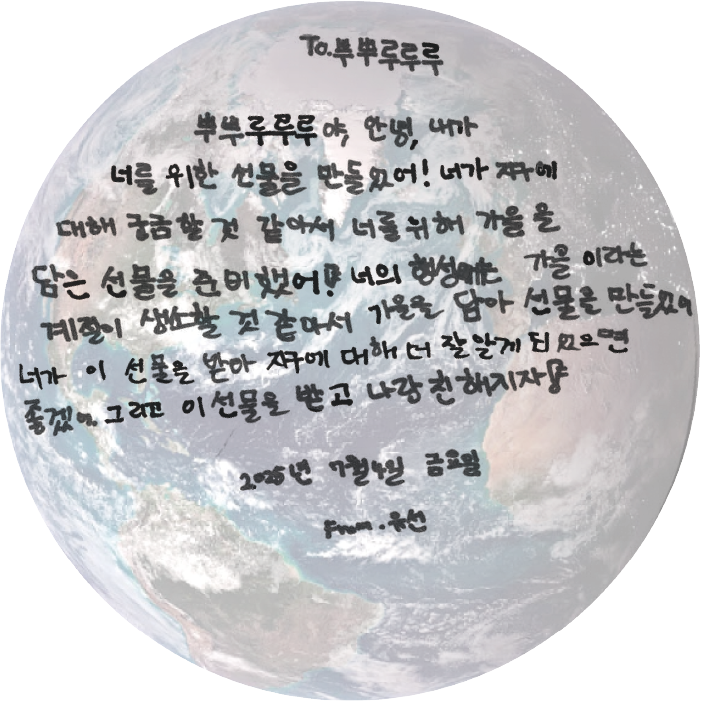 To.뿌뿌루루루
뿌뿌루루루야, 안녕, 내가
너를 위한 선물을 만들었어! 너가 지구에
대해 궁금할 것 같아서 너를 위해 가을을
담은 선물을 준비했어! 너의 행성에는 가을이라는
계절이 생소할 것 같아서 가을을 담아 선물을 만들었어
너가 이 선물을 받아 지구에 대해 더 잘 알게 되었으면
좋겠어. 그리고 이 선물을 받고 나랑 친해지자!
2025년 7월 4일 금요일
From. 유선